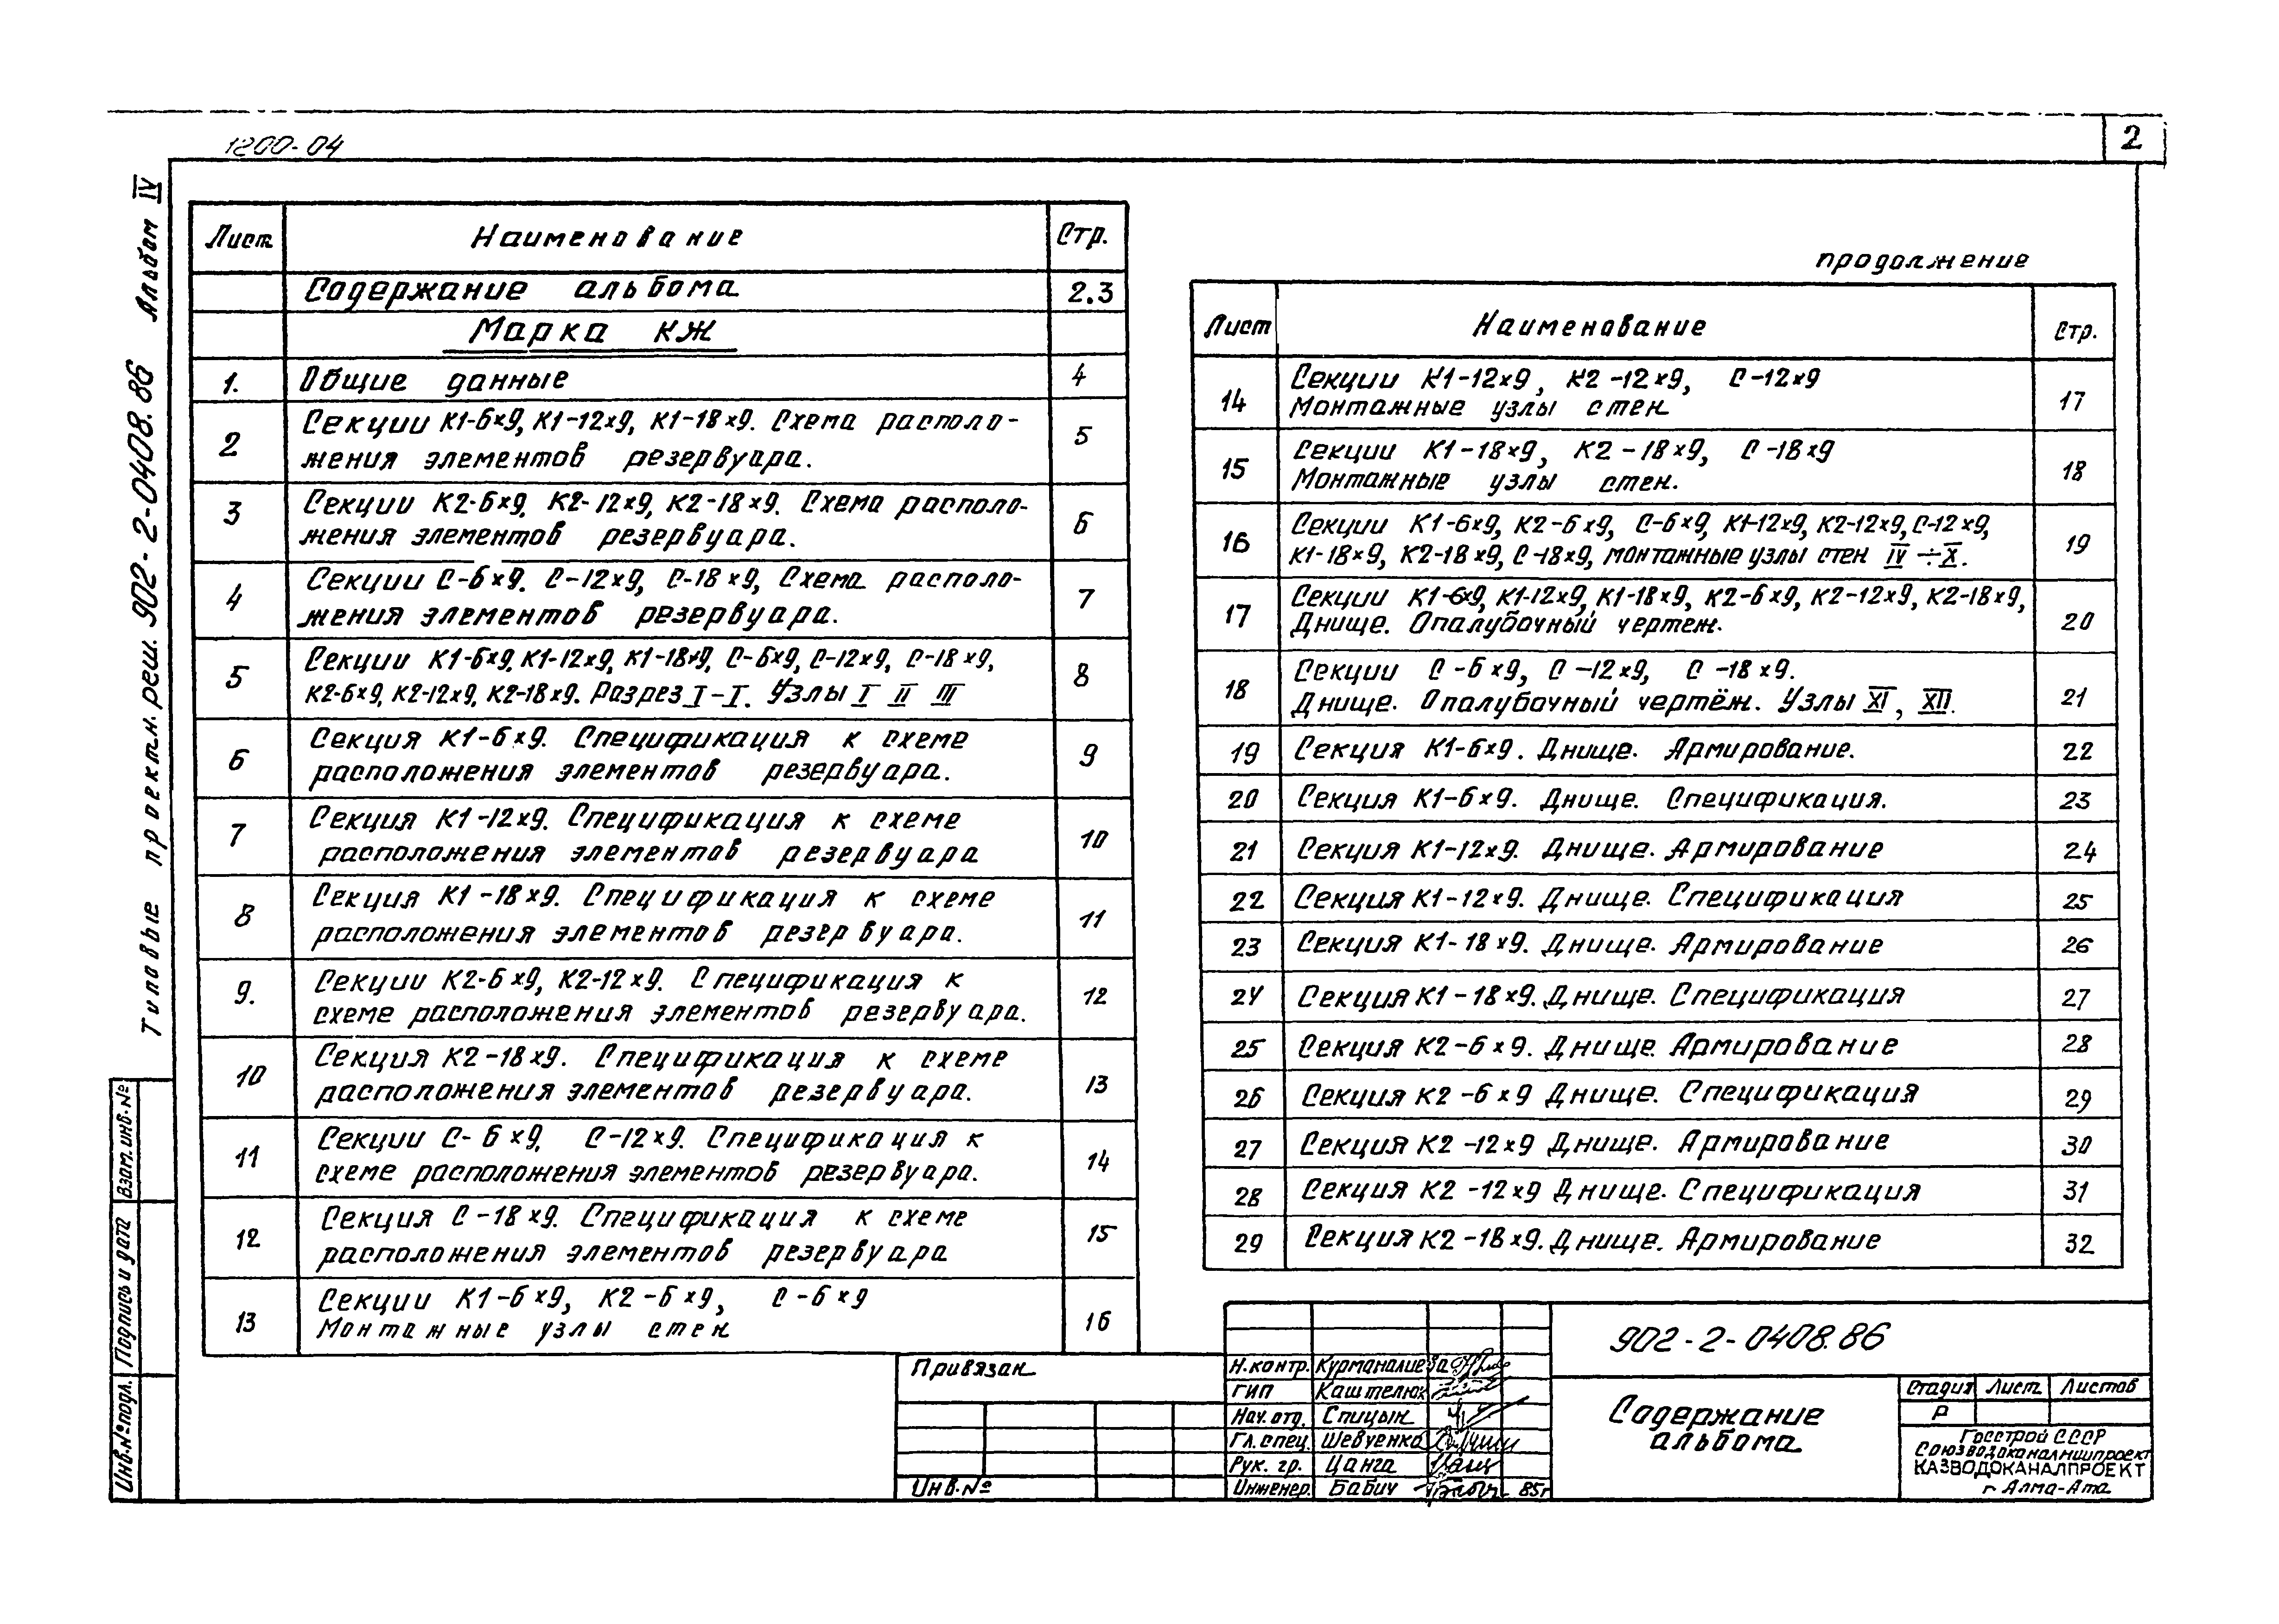 1200-04
2
Типовые проектн. реш. 902-2-0408.86 Альбом IV
Лист Наименование Стр.
Содержание альбома 2.3
Марка КЖ
1. Общие данные 4
2 Секции К1-6х9, К1-12х9, К1-18х9. Схема располо-
жения элементов резервуара. 5
3 Секции К2-6х9, К2-12х9, К2-18х9. Схема располо-
жения элементов резервуара. 6
4 Секции С-6х9. С-12х9, С-18х9, Схема располо-
жения элементов резервуара. 7
5 Секции К1-6х9, К1-12х9, К1-18х9, С-6х9, С-12х9, С-18х9,
К2-6х9, К2-12х9, К2-18х9. Разрез I-I. Узлы I II III 8
6 Секция К1-6х9. Спецификация к схеме
расположения элементов резервуара. 9
7 Секция К1-12х9. Спецификация к схеме
расположения элементов резервуара 10
8 Секция К1-18х9. Спецификация к схеме
расположения элементов резервуара. 11
9. Секции К2-6х9, К2-12х9. Спецификация к
схеме расположения элементов резервуара. 12
10 Секция К2-18х9. Спецификация к схеме
расположения элементов резервуара. 13
11 Секции С-6х9, С-12х9. Спецификация к
схеме расположения элементов резервуара. 14
12 Секция С-18х9. Спецификация к схеме
расположения элементов резервуара 15
13 Секции К1-6х9, К2-6х9, С-6х9
Монтажные узлы стен 16
продолжение
Лист Наименование Стр.
14 Секции К1-12х9, К2-12х9, С-12х9
Монтажные узлы стен 17
15 Секции К1-18х9, К2-18х9, С-18х9
Монтажные узлы стен. 18
16 Секции К1-6х9, К2-6х9, С-6х9, К1-12х9, К2-12х9, С-12х9,
К1-18х9, К2-18х9, С-18х9, монтажные узлы стен IV÷X. 19
17 Секции К1-6х9, К1-12х9, К1-18х9, К2-6х9, К2-12х9, К2-18х9,
Днище. Опалубочный чертеж. 20
18 Секции С-6х9, С-12х9, С-18х9.
Днище. Опалубочный чертёж. Узлы XI, XII. 21
19 Секция К1-6х9. Днище. Армирование. 22
20 Секция К1-6х9. Днище. Спецификация. 23
21 Секция К1-12х9. Днище. Армирование 24
22 Секция К1-12х9. Днище. Спецификация 25
23 Секция К1-18х9. Днище. Армирование 26
24 Секция К1-18х9. Днище. Спецификация 27
25 Секция К2-6х9. Днище. Армирование 28
26 Секция К2-6х9 Днище. Спецификация 29
27 Секция К2-12х9 Днище. Армирование 30
28 Секция К2-12х9 Днище. Спецификация 31
29 Секция К2-18х9. Днище. Армирование 32
Взам. инв. №
Подпись и дата
Инв. № подл.
Привязан
Инв. №
Н. контр. Курманалиева
ГИП Каштелюк
Нач. отд. Спицын
Гл. спец. Шевченко
Рук. гр. Цанга
Инженер. Бабич 85г
902-2-0408.86
Содержание
альбома
Стадия Лист Листов
Р
Госстрой СССР
Союзводоканалниипроект
КАЗВОДОКАНАЛПРОЕКТ
г Алма-Ата